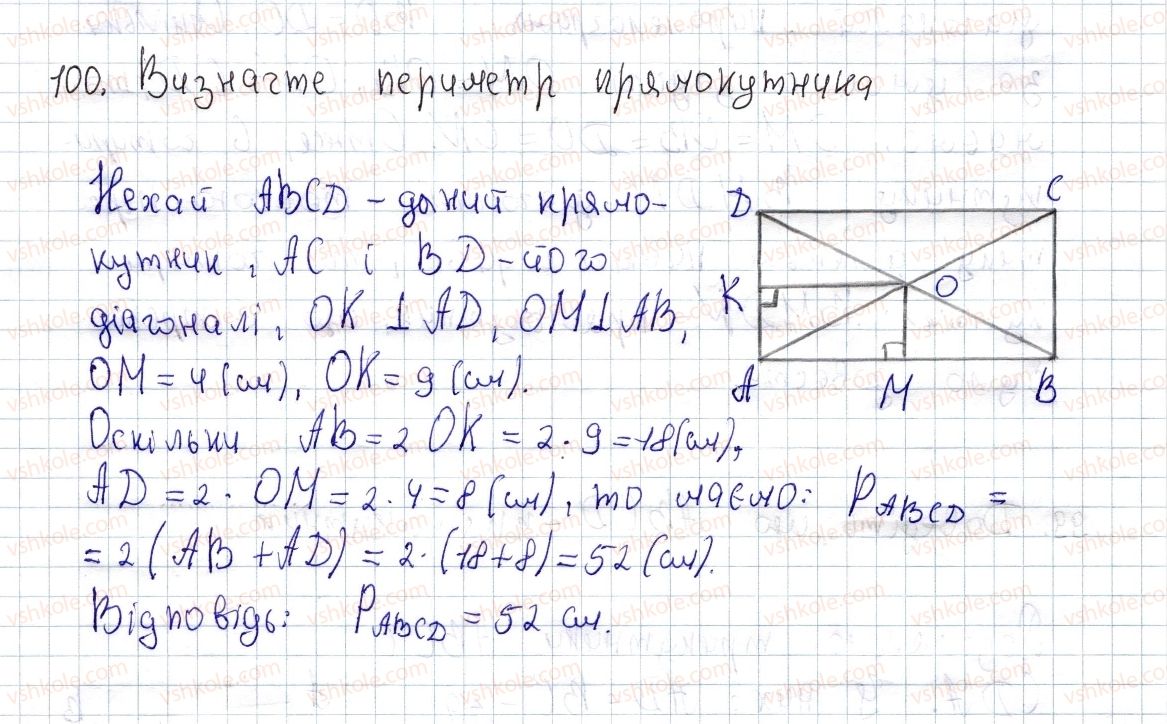 100. Визначте периметр прямокутника
Нехай ABCD – даний прямо-
кутник, AC і BD – його
діагоналі, OK ⊥ AD, OM ⊥ AB,
OM = 4 (см), OK = 9 (см).
Оскільки AB = 2 OK = 2 · 9 = 18 (см),
AD = 2 · OM = 2 · 4 = 8 (см), то маємо: P ABCD =
= 2 (AB + AD) = 2 · (18 + 8) = 52 (см).
Відповідь: P ABCD = 52 см.
D C
K O
A M B
vshkole.com